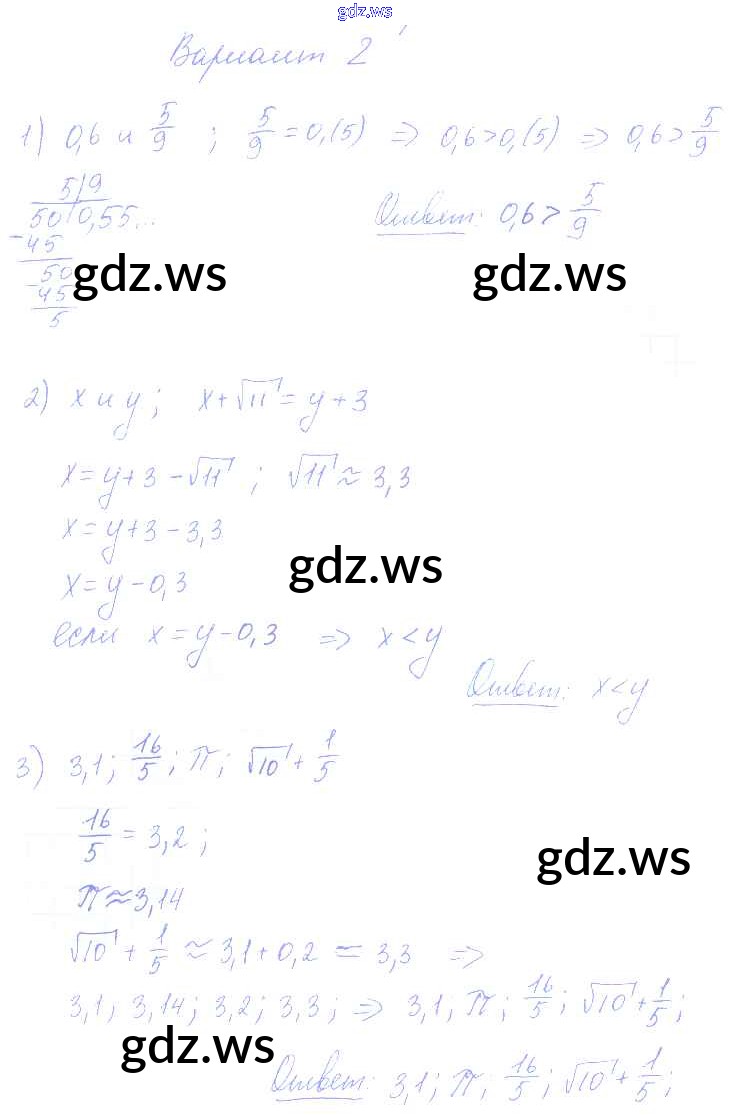 gdz.ws
Вариант 2
1) 0,6 и 5/9 ; 5/9 = 0,(5) ⇒ 0,6 > 0,(5) ⇒ 0,6 > 5/9
5 | 9
50 | 0,55...
Ответ: 0,6 > 5/9
- 45
50
gdz.ws gdz.ws
- 45
5
2) x и y ; x + √11 = y + 3
x = y + 3 - √11 ; √11 ≈ 3,3
x = y + 3 - 3,3
gdz.ws
x = y - 0,3
если x = y - 0,3 ⇒ x < y
Ответ: x < y
3) 3,1 ; 16/5 ; π ; √10 + 1/5
16/5 = 3,2 ;
gdz.ws
π ≈ 3,14
√10 + 1/5 ≈ 3,1 + 0,2 = 3,3 ⇒
3,1 ; 3,14 ; 3,2 ; 3,3 ; ⇒ 3,1 ; π ; 16/5 ; √10 + 1/5 ;
gdz.ws
Ответ: 3,1 ; π ; 16/5 ; √10 + 1/5 ;